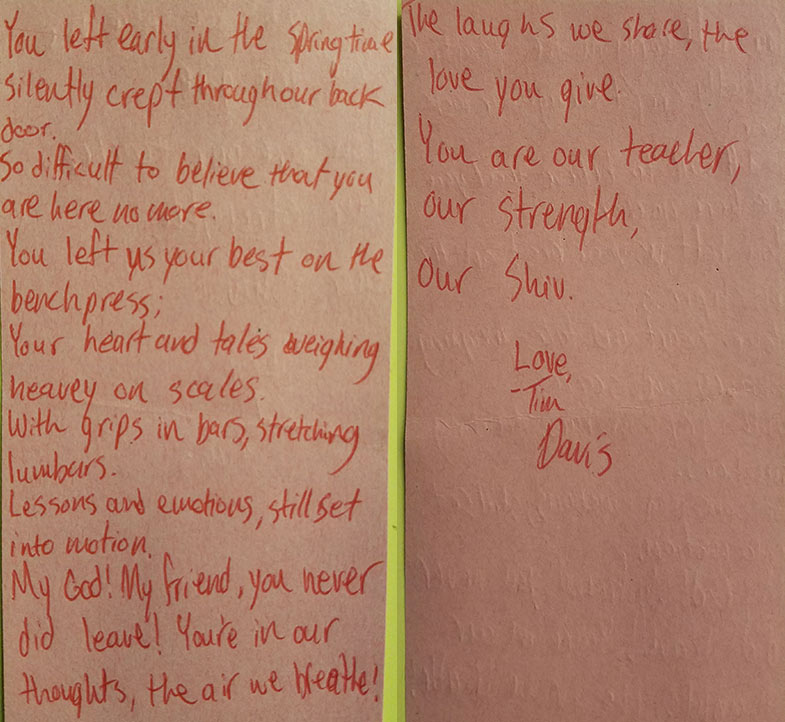 You left early in the Springtime
silently crept through our back
door.
So difficult to believe that you
are here no more.
You left us your best on the
benchpress;
Your heart and tales weighing
heavey on scales.
With grips in bars, stretching
lumbars.
Lessons and emotions, still set
into motion.
My God! My friend, you never
did leave! You're in our
thoughts, the air we breathe!
The laughs we share, the
love you give.
You are our teacher,
our strength,
our Shiv.
Love,
-Tim
Davis